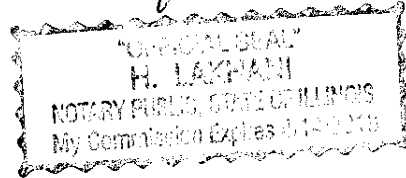 "OFFICIAL SEAL"
H. LAKHANI
NOTARY PUBLIC, STATE OF ILLINOIS
My Commission Expires